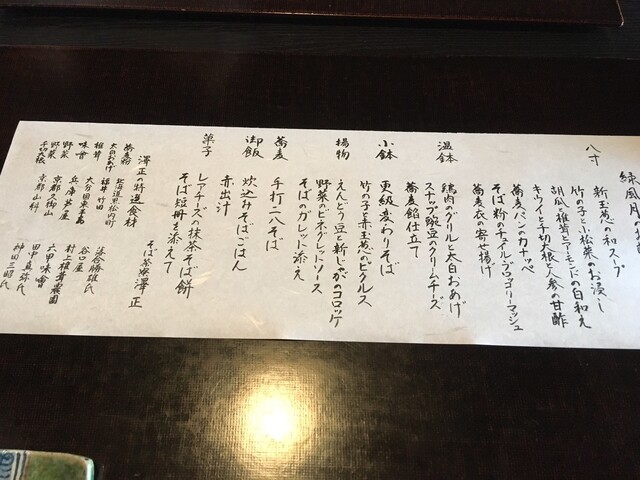 八寸
新玉葱の和スープ
竹の子と小松菜のお浸し
胡瓜と椎茸とアーモンドの白和え
キウイと千切大根と人参の甘酢
蕎麦パンのカナッペ
そば粉のチュイル・ブロッコリーマッシュ
蕎麦衣の寄せ揚げ
温鉢
鶏肉のグリルと太白おあげ
スナップ豌豆のクリームチーズ
蕎麦餡仕立て
小鉢
更級変わりそば
竹の子と赤玉葱のピクルス
揚物
えんどう豆と新じゃがのコロッケ
野菜のビネグレットソース
そばのガレット添え
蕎麦
手打二八そば
御飯
炊込みそばごはん
赤出汁
菓子
レアチーズへ抹茶そば餅
そば短冊を添えて
澤正の特選食材
そば茶寮澤正
蕎麦粉 北海道黒松内町 落合勝雄氏
太白おあげ 福井竹田 谷口屋
椎茸 大分国東半島 村上椎茸農園
味噌 兵庫芦屋 六甲味噌
野菜 京都久御山 田中真弥氏
千切大根 京都山科 神田三昭氏